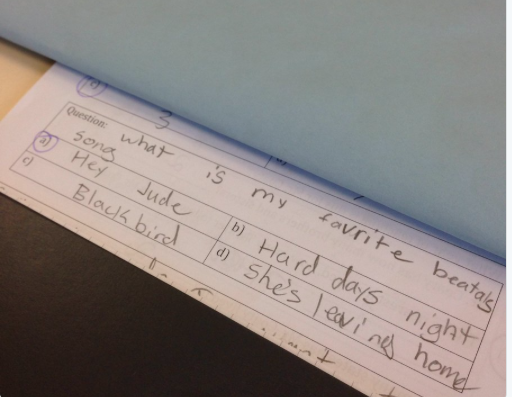 3
Question: what is my favrite beatals
song
a) Hey Jude
b) Hard days night
c) Blackbird
d) She's leaving home